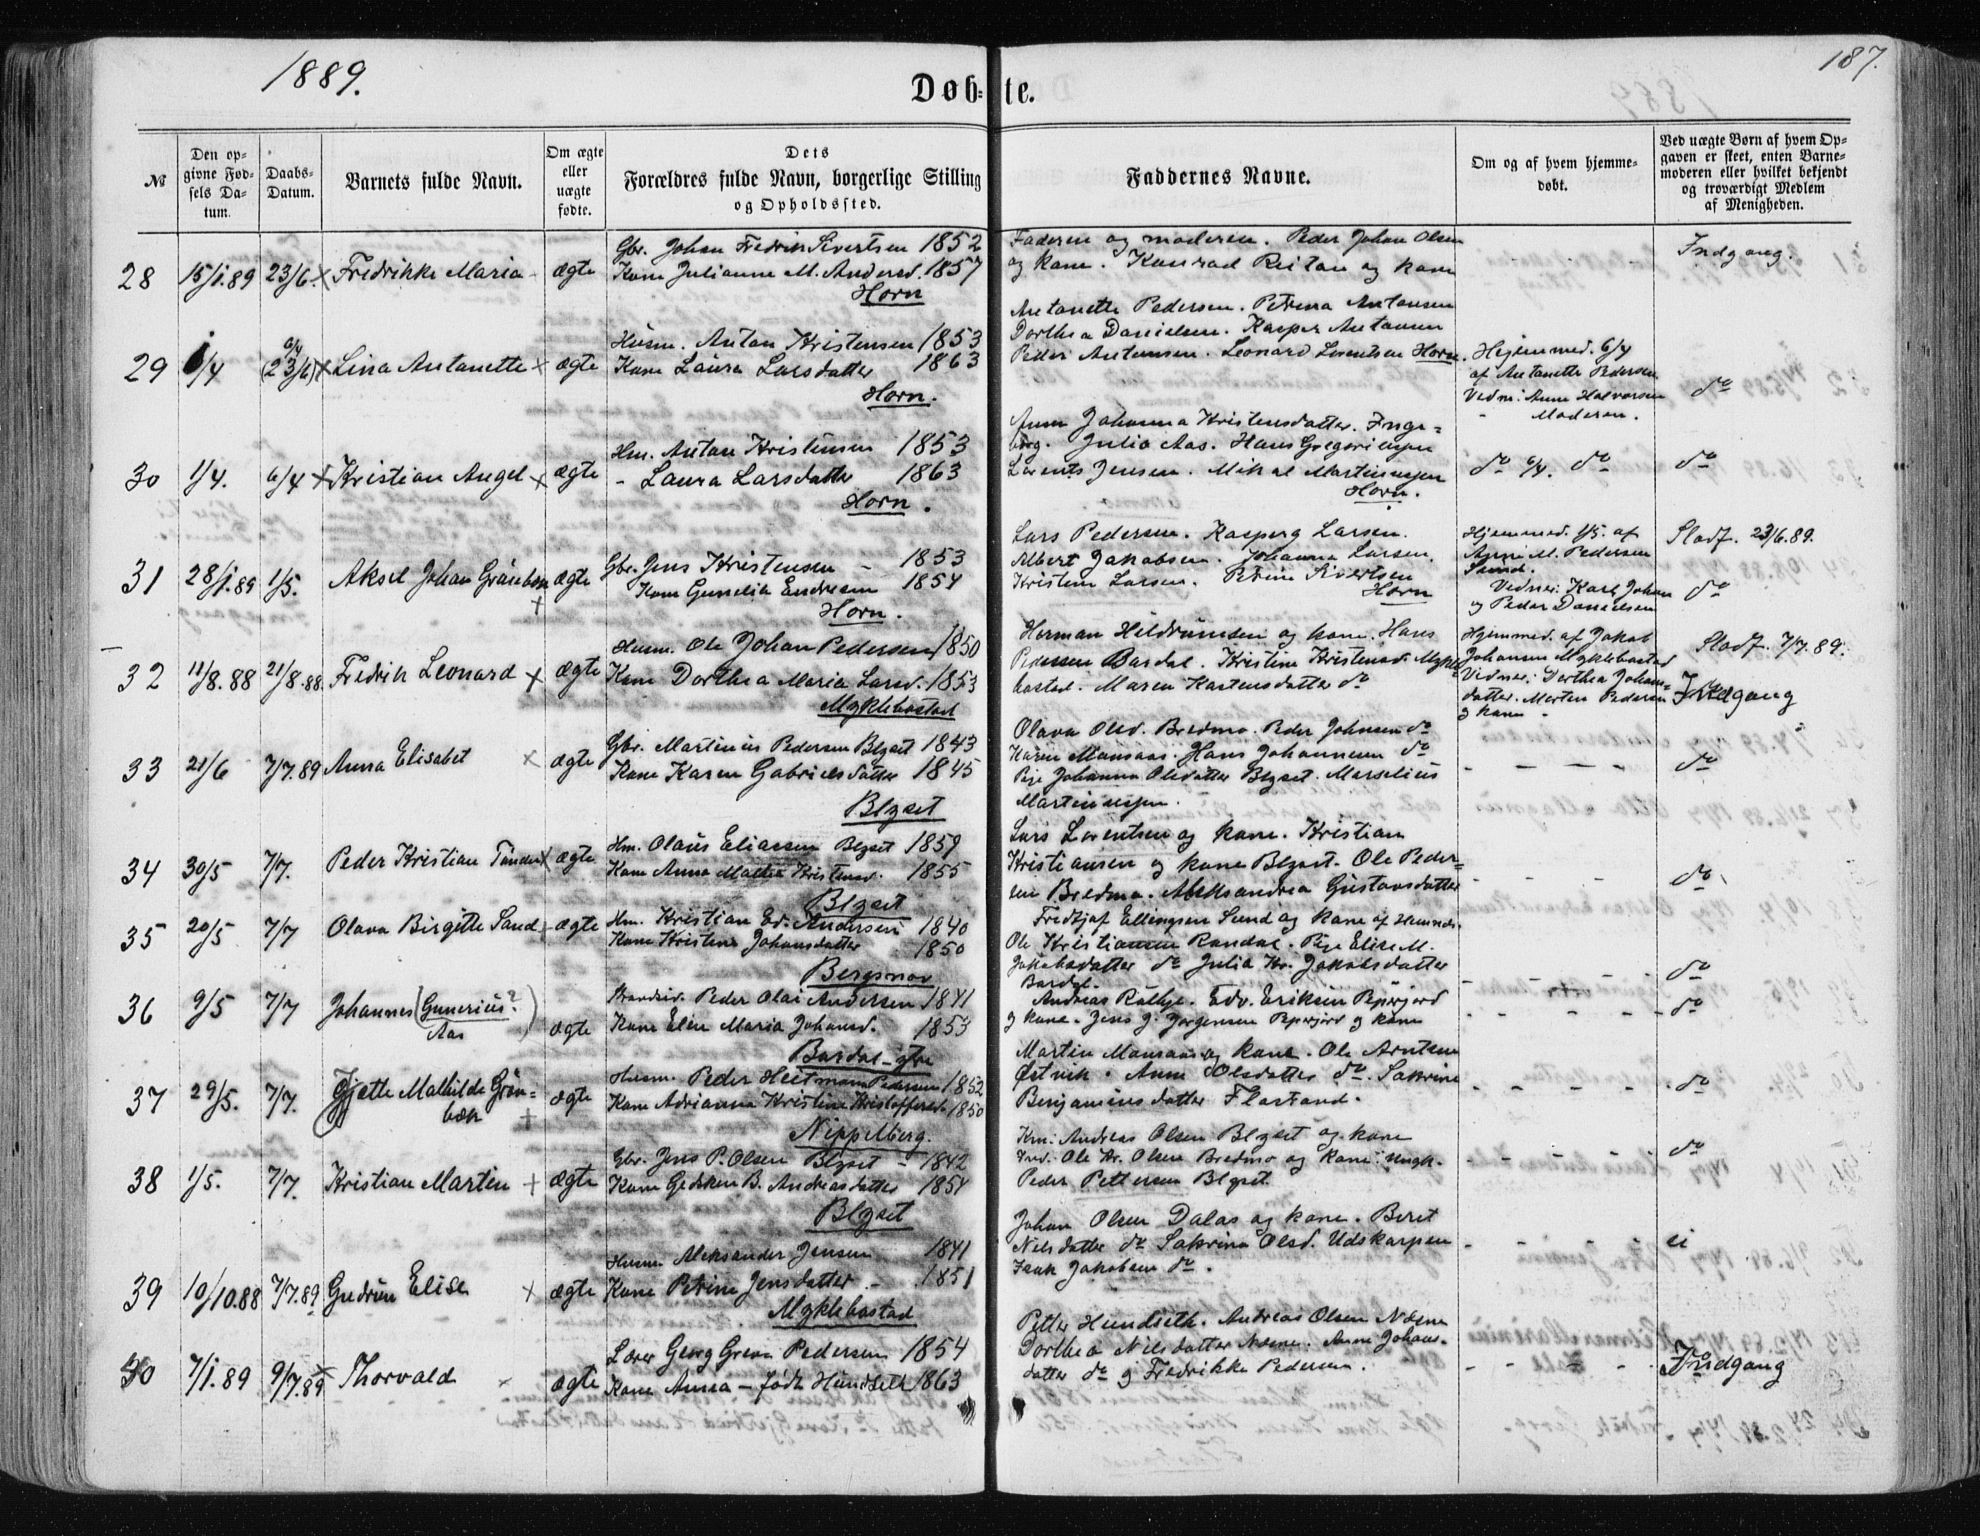 1889.
Døb-te.
187.
№
Den opgivne Fødsels Datum.
Daabs-Datum.
Barnets fulde Navn.
Om ægte eller uægte fødte.
Dets Forældres fulde Navn, borgerlige Stilling og Opholdssted.
Faddernes Navne.
Om og af hvem hjemmedøbt.
Ved uægte Børn af hvem Opgaven er skeet, enten Barnemoderen eller hvilket bekjendt og troværdigt Medlem af Menigheden.
28 15/1.89 23/6. Fredrikke Maria ægte
Gbr. Johan Fredrik Sivertsen 1852
Kone Julianne M. Andersd. 1857
Horn
Faderen og moderen. Peder Johan Olsen
og kone. Konrad Ristan og kone
Indgang.
29 1/4 6/4 (23/6) Lina Antonette ægte
Husm. Anton Kristensen 1853
Kone Laura Larsdatter 1863
Horn.
Antonette Pedersen. Petrina Antonsen
Dorthea Danielsen. Kasper Antonsen
Peder Antonsen. Leonard Lorentsen Horn.
Hjemmed. 6/4
af Antonette Pedersen
Vidn: Anne Halvorsen
Moderen.
do
30 1/4. 6/4 Kristian Angel ægte
Hm. Anton Kristensen 1853
- Laura Larsdatter 1863
Horn.
Johanna Kristensdatter. Inge-
borg. Julia Aas. Hans Gregoriusen
Lorents Jensen. Mikal Martinusen
Horn.
do 6/4. do
do
31 28/1.89 1/5. Aksel Johan ægte
Gbr. Jens Kristensen - 1853
Kone Gunelia Endresen 1854
Horn.
Lars Pedersen. Kasperg Larsen.
Albert Jakobsen. Johanna Larsen.
Kristen Larsen. Petrine Sivertsen
Horn
Hjemmed. 1/5. af
Anne M. Pedersen
Sund.
Vidner: Karl Johan
og Peder Danielsen
Stadf. 23/6.89.
do
32 11/8.88 21/8.88. Fredrik Leonard ægte
Husm. Ole Johan Pedersen 1850
Kone Dorthea Maria Larsd. 1853
Myklebostad
Herman Hildrumsen og kone. Hans
Pedersen Bardal. Kristine Kristensd. Mykle-
bostad. Maren Karstensdatter do
Hjemmed. af Jakob
Johansen Myklebostad
Vidner: Dorthea Johans-
datter. Morten Pedersen
og kone -
Stadf. 7/7.89.
Indgang
33 21/6 7/7.89 Anna Elisabet ægte
Gbr. Martinus Pedersen Blyset 1843
Kone Karen Gabrielsdatter 1845
Blyset
Olava Olsd. Bredmo. Peder Johnsen do
Karen Monsaas. Hans Johannesen do
Pige Johanna Olsdatter Blyset. Marselius
Martinusen.
do
34 30/5 7/7. Peder Kristian ægte
Hm. Olaus Eliassen Blyset 1859
Kone Anna Kristensd. 1855
Blyset
Lars Lorentsen og kone. Kristian
Kristiansen og kone Blyset. Ole Peder-
sen Bredmo. Aleksandria Gustavsdatter
do
35 20/5 7/7 Olava Birgitte Sand ægte
Hm. Kristian Ed. Andersen 1840
Kone Kristine Johansdatter 1850
Bergsnov
Fredtjof Ellingsen Sund og kone af Hemnes.
Ole Kristiansen Randal. Pige Elise M.
Jakobsdatter do Julia Kr. Jakobsdatter
Bardal.
do
36 9/5 7/7 Johannes (Gunerius?) Aas ægte
Strandsid. Peder Olai Andersen 1841
Kone Elen Maria Johansd. 1853
Bardal
Andreas Edv. Eriksen
og kone. Jens J. Jørgensen og kone
do
37 29/5. 7/7. Gjette Mathilde Grøn-
bæk ægte
Husm. Peder Heitmann Pedersen 1852
Kone Adrianna Kristine Kristoffersd. 1850
Nippelberg.
Martin Monsaas og kone. Ole Arntsen
Østvik. Anne Olsdatter do. Sakrine
Benjaminsdatter Flostrand.
do
38 1/5. 7/7. Kristian Martin ægte
Gbr. Jens P. Olsen Blyset - 1842
Kone Gedsken B. Andreasdatter 1851
Blyset
Andreas Olsen Blyset og kone
Ole Kr. Olsen Bredmo og kone. Ungk.
Peder Pettersen Blyset.
do
39 10/10.88 7/7.89 Gudrun Elise ægte
Husm. Aleksander Jensen 1841
Kone Petrine Jensdatter - 1851
Myklebostad
Johan Olsen Dalas og kone. Beret
Nilsdatter do Sakrine Olsd. Udskarpen
Isak Jakobsen do.
ei
40 7/1.89 9/7.89 Thorvald ægte
Lærer Georg Greva Pedersen 1854
Kone Anna - født Hundseth 1863
Petter Hundseth. Andreas Olsen
Dorthea Nilsdatter. Anne Johans-
datter do og Fredrikke Pedersen.
Indgang